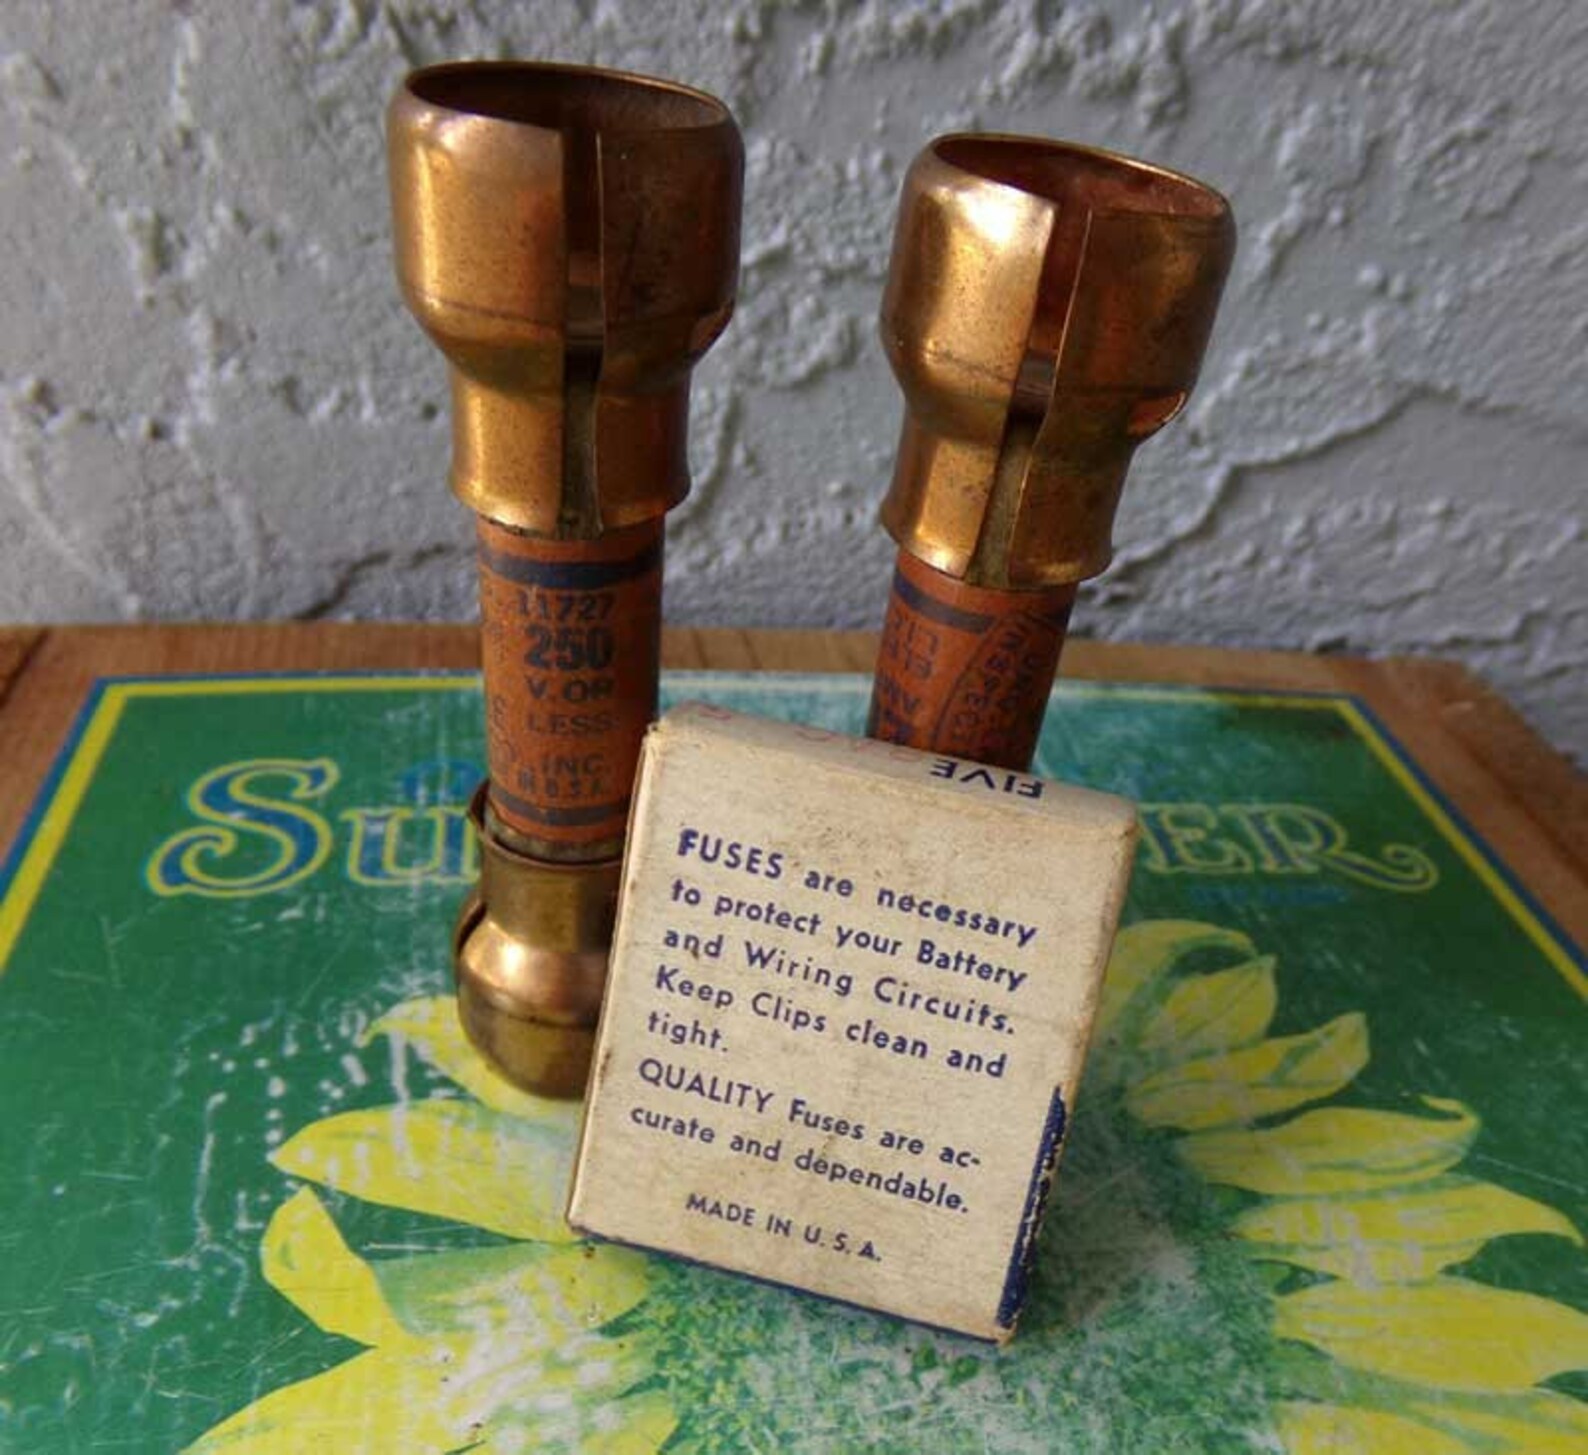 11727
250
V. OR
LESS
INC.
INSPECT
FIVE
FUSES are necessary
to protect your Battery
and Wiring Circuits.
Keep Clips clean and
tight.
QUALITY Fuses are ac-
curate and dependable.
MADE IN U.S.A.